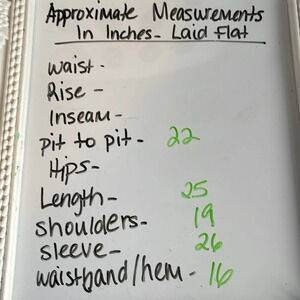 Approximate Measurements
In Inches - Laid Flat
waist -
Rise -
Inseam -
pit to pit - 22
Hips -
Length - 25
shoulders - 19
sleeve - 26
waistband/hem - 16